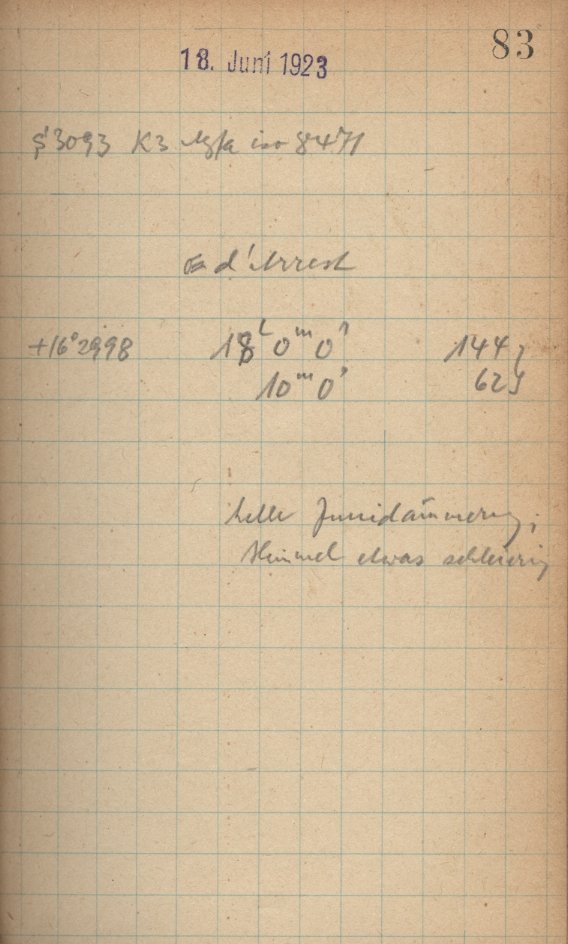 83
18. Juni 1923
3093 K3 Agfa iso 8471
d'Arrest
+16°2998 18 0 0 144
10 0 62
helle Junidämmerung;
Himmel etwas schleierig